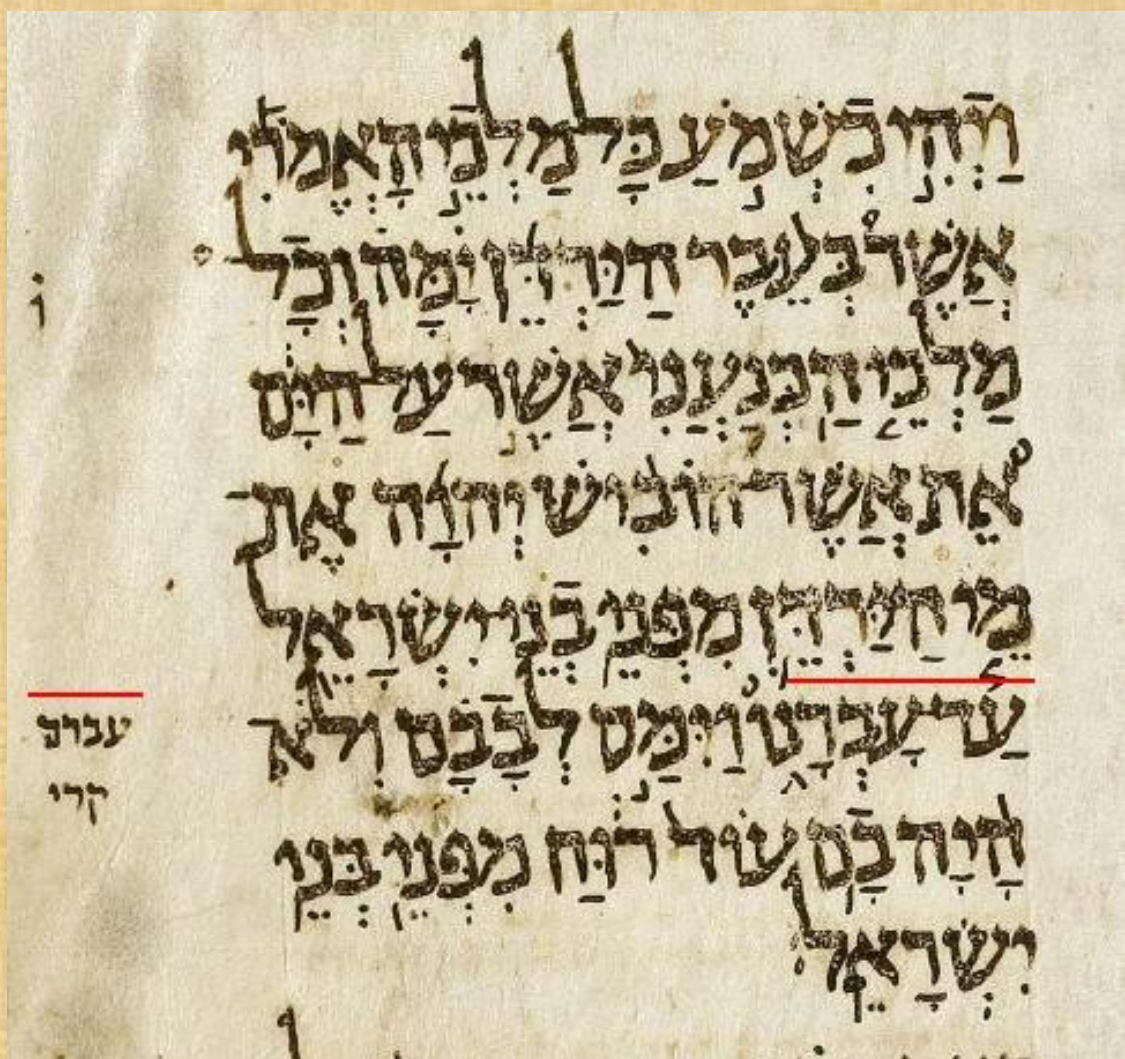 וַיְהִי כִשְׁמֹעַ כָּל מַלְכֵי הָאֱמֹרִי
אֲשֶׁר בְּעֵבֶר הַיַּרְדֵּן יָמָּה וְכָל־
ו
מַלְכֵי הַכְּנַעֲנִי אֲשֶׁר עַל הַיָּם
אֵת אֲשֶׁר הוֹבִישׁ יְהוָה אֶת־
מֵי הַיַּרְדֵּן מִפְּנֵי בְנֵי יִשְׂרָאֵל
עַד עָבְרָנוּ וַיִּמַּס לְבָבָם וְלֹא־
עברם
קרי
הָיָה בָם עוֹד רוּחַ מִפְּנֵי בְּנֵי
יִשְׂרָאֵל